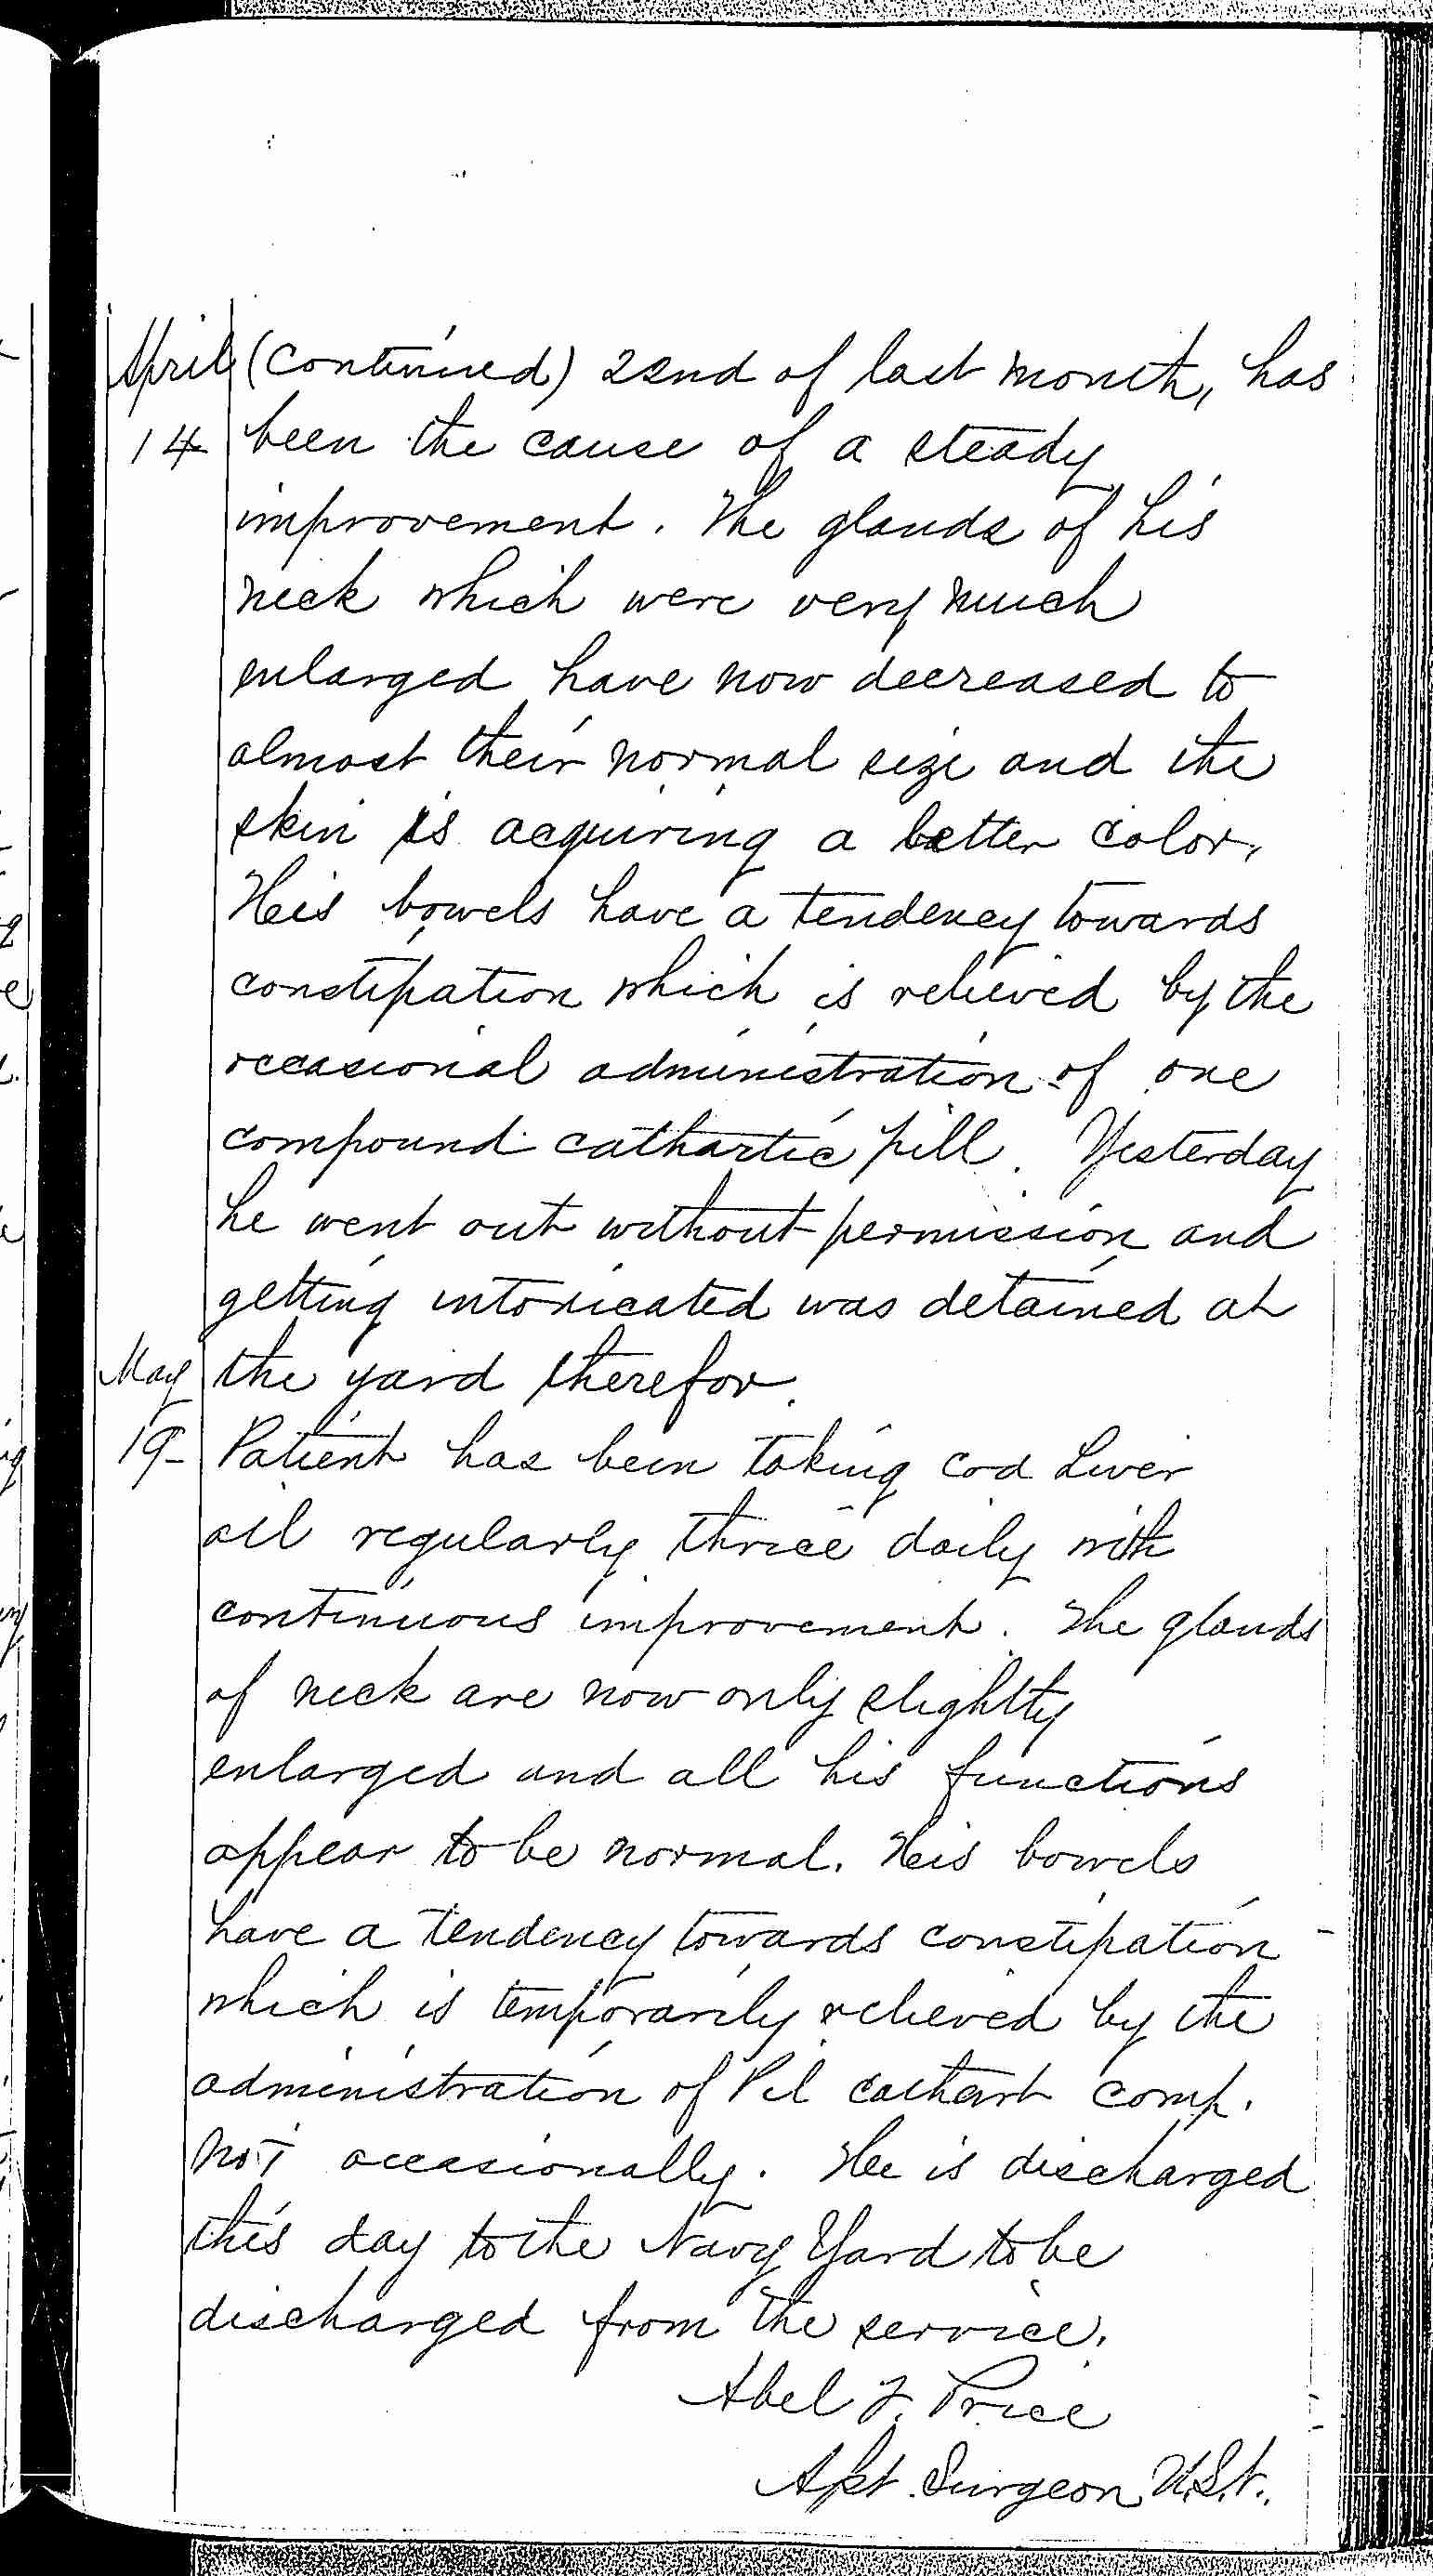 April (Continued) 22nd of last month, has
14 been the cause of a steady
improvement. The glands of his
neck which were very much
enlarged have now decreased to
almost their normal size and the
skin is acquiring a better color.
His bowels have a tendency towards
constipation which is relieved by the
occasional administration of one
compound cathartic pill. Yesterday
he went out without permission and
getting intoxicated was detained at
May the yard therefor.
19- Patient has been taking cod Liver
oil regularly thrice daily with
continuous improvement. The glands
of neck are now only slightly
enlarged and all his functions
appear to be normal. His bowels
have a tendency towards constipation
which is temporarily relieved by the
administration of Pil cathart comp.
occasionally. He is discharged
this day to the Navy Yard to be
discharged from the service.
Abel F. Price
Asst. Surgeon U.S.N.